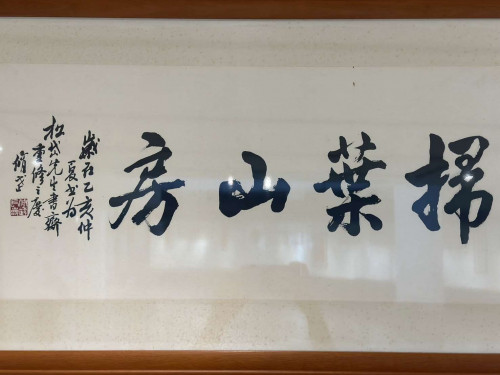 掃葉山房
歲在乙亥仲
夏書為
松岱先生書齋
重修之慶